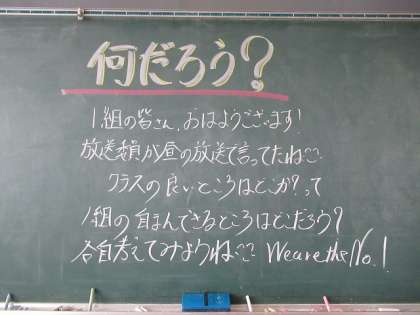 何だろう?
1組の皆さん、おはようございます!
放送委員が昼の放送で言ってたね
クラスの良いところはどこか?って
1組の自まんできるところはどこだろう?
各自考えてみようね We are the No.1